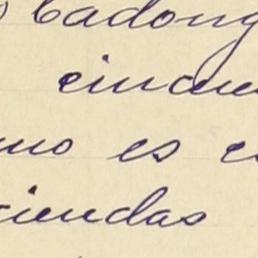 Badong
cincuen
mo es c
ciendas